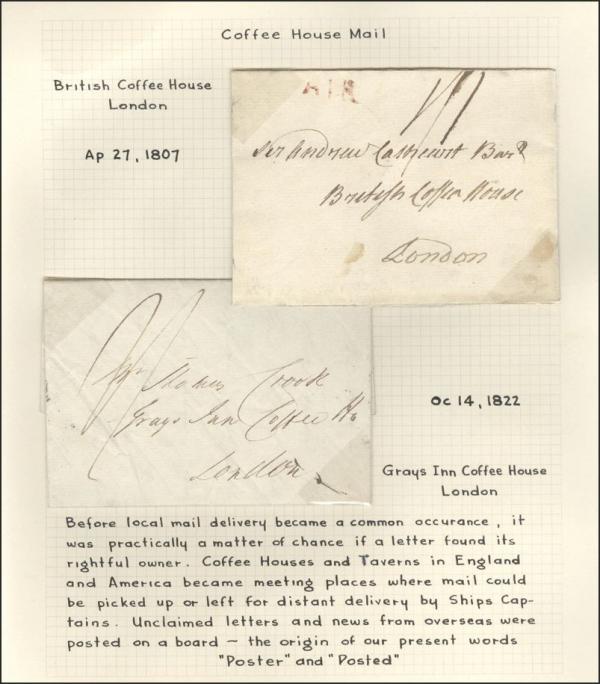 Coffee House Mail
British Coffee House
London
Ap 27, 1807
AIR
Sir Andrew Cathcart Bart
British Coffee House
London
Mr Thomas Crook
Grays Inn Coffee Ho
London
Oc 14, 1822
Grays Inn Coffee House
London
Before local mail delivery became a common occurance, it
was practically a matter of chance if a letter found its
rightful owner. Coffee Houses and Taverns in England
and America became meeting places where mail could
be picked up or left for distant delivery by Ships Cap-
tains. Unclaimed letters and news from overseas were
posted on a board ~ the origin of our present words
"Poster" and "Posted"